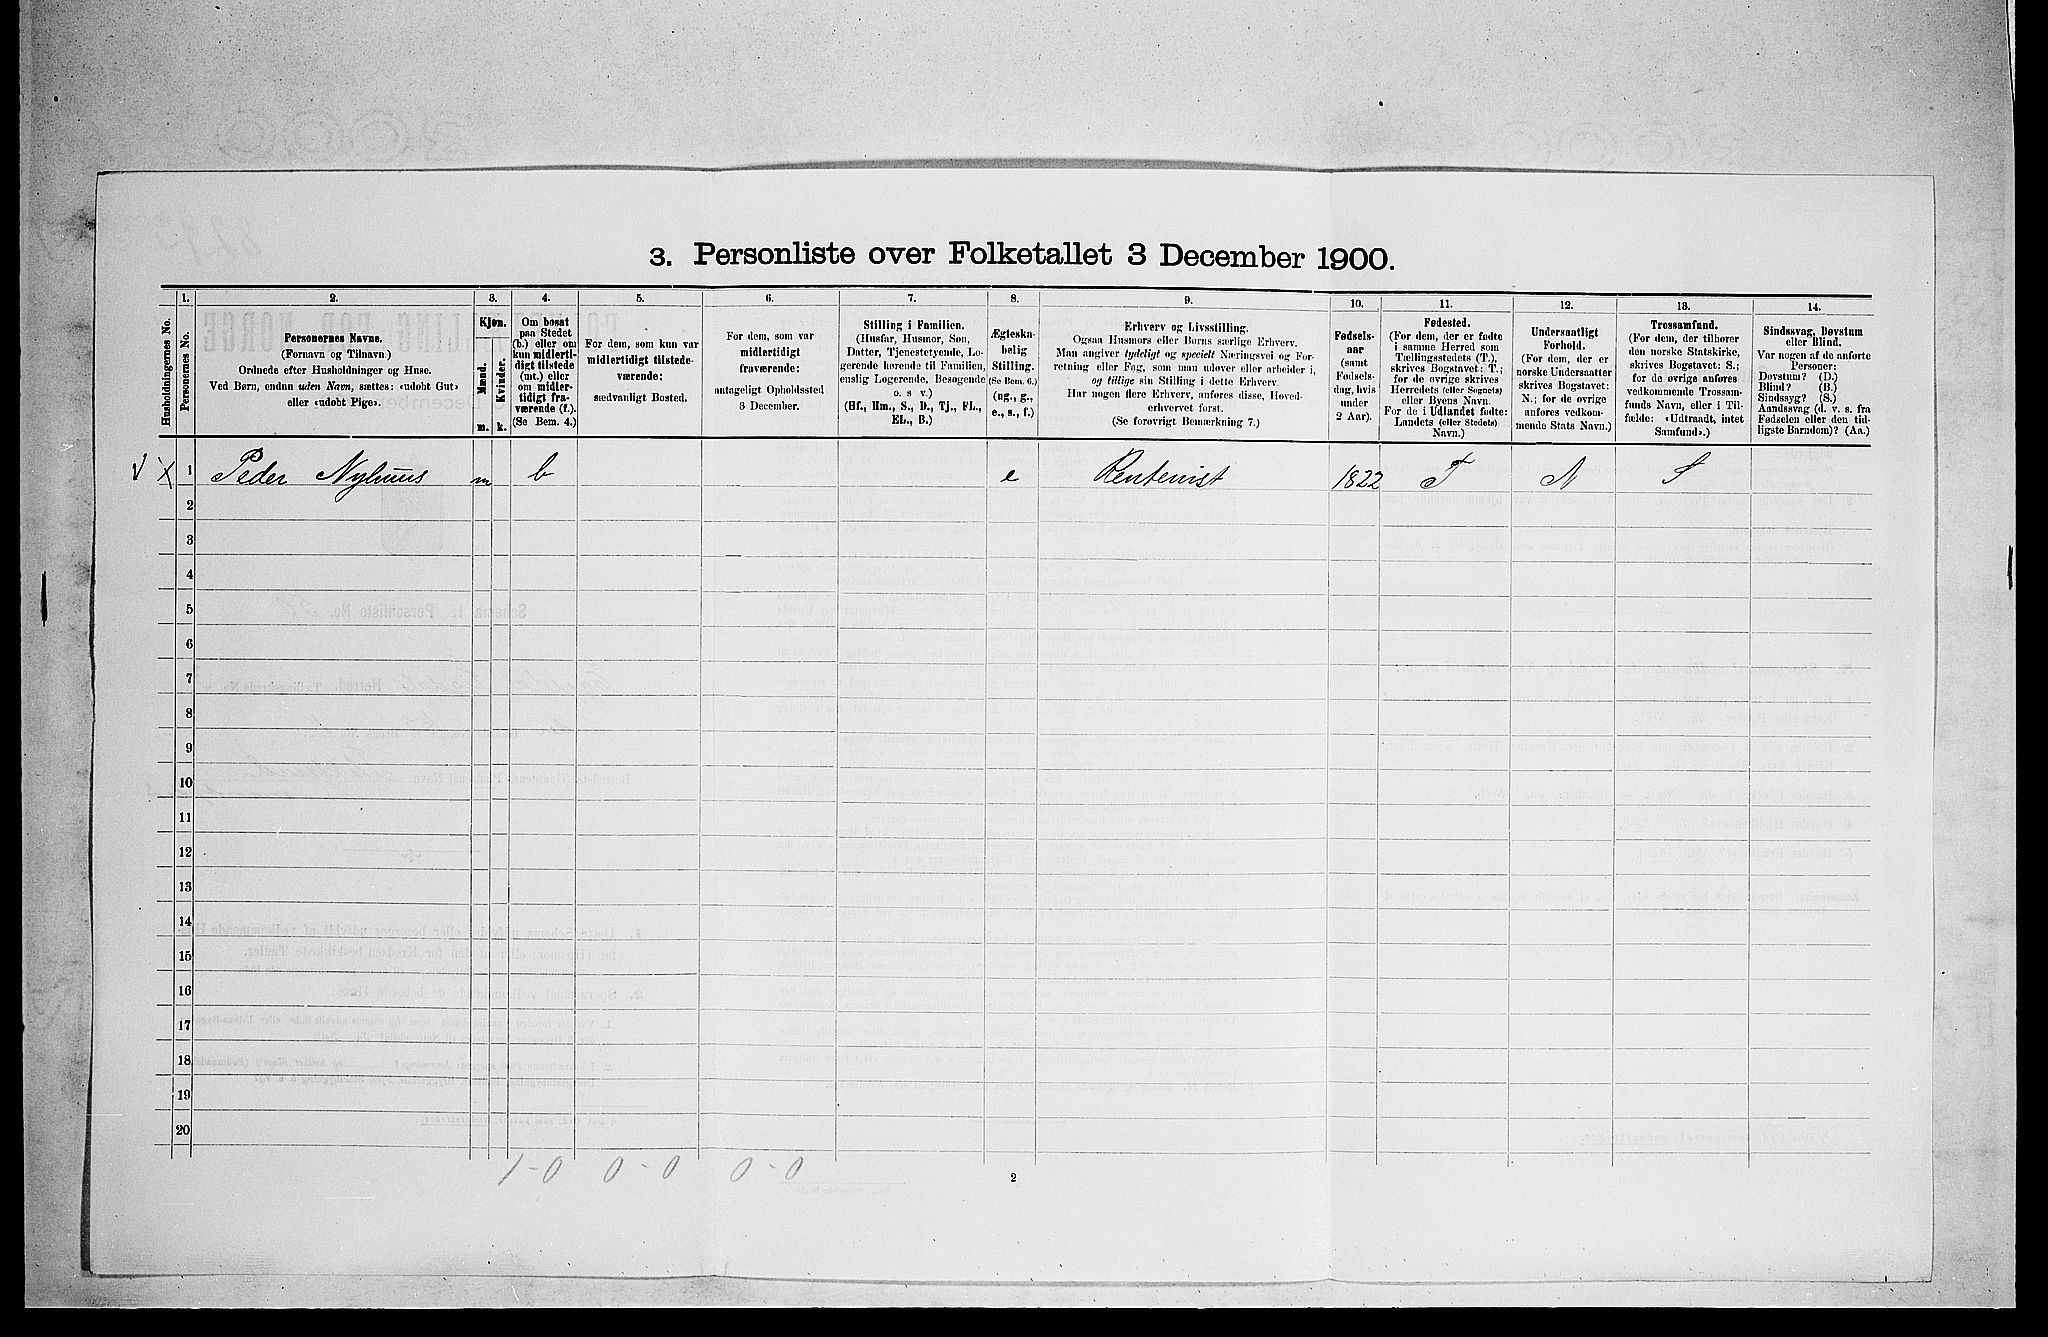 3. Personliste over Folketallet 3 December 1900.
Husholdningernes No.
1.
Personernes No.
2.
Personernes Navne.
(Fornavn og Tilnavn.)
Ordnede efter Husholdninger og Huse.
Ved Børn, endnu uden Navn, sættes: «udøbt Gut»
eller «udøbt Pige».
3.
Kjøn.
Mænd.
Kvinder.
m.
k.
4.
Om bosat
paa Stedet
(b.) eller om
kun midlerti-
digt tilstede
(mt.) eller
om midler-
tidigt fra-
værende (f.).
(Se Bem. 4.)
5.
For dem, som kun var
midlertidigt tilstede-
værende:
sædvanligt Bosted.
6.
For dem, som var
midlertidigt
fraværende:
antageligt Opholdssted
3 December.
7.
Stilling i Familien.
(Husfar, Husmor, Søn,
Datter, Tjenestetyende, Lo-
gerende hørende til Familien,
enslig Logerende, Besøgende
o. s v.)
(Hf., Hm., S., D., Tj., Fl.,
El., B.)
8.
Ægteska-
belig
Stilling.
(Se Bem. 6.)
(ug., g.,
e., s., f.)
9.
Erhverv og Livsstilling.
Ogsaa Husmors eller Børns særlige Erhverv.
Man angiver tydeligt og specielt Næringsvei og For-
retning eller Fag, som man udøver eller arbeider i,
og tillige sin Stilling i dette Erhverv.
Har nogen flere Erhverv, anføres disse, Hoved-
erhvervet først.
(Se forøvrigt Bemærkning 7.)
10.
Fødsels-
aar
(samt
Fødsels-
dag, hvis
under
2 Aar).
11.
Fødested.
(For dem, der er fødte
i samme Herred som
Tællingsstedets (T.),
skrives Bogstavet: T.;
for de øvrige skrives
Herredets (eller Sognets)
eller Byens Navn.
For de i Udlandet fødte:
Landets (eller Stedets)
Navn.)
12.
Undersaatligt
Forhold.
(For dem, der er
norske Undersaatter
skrives Bogstavet:
N.; for de øvrige
anføres vedkom-
mende Stats Navn.)
13.
Trossamfund.
(For dem, der tilhører
den norske Statskirke,
skrives Bogstavet: S.;
for de øvrige anføres
vedkommende Trossam-
funds Navn, eller i Til-
fælde: «Udtraadt, intet
Samfund».)
14.
Sindssvag, Døvstum
eller Blind.
Var nogen af de anførte
Personer:
Døvstum? (D.)
Blind? (B.)
Sindssyg? (S.)
Aandssvag (d. v. s. fra
Fødselen eller den tid-
ligste Barndom)? (Aa.)
√ X 1 Peder Nyhuus m b e Rentenist 1822 T N S
2
3
4
5
6
7
8
9
10
11
12
13
14
15
16
17
18
19
20
1-0 0-0 0-0
2